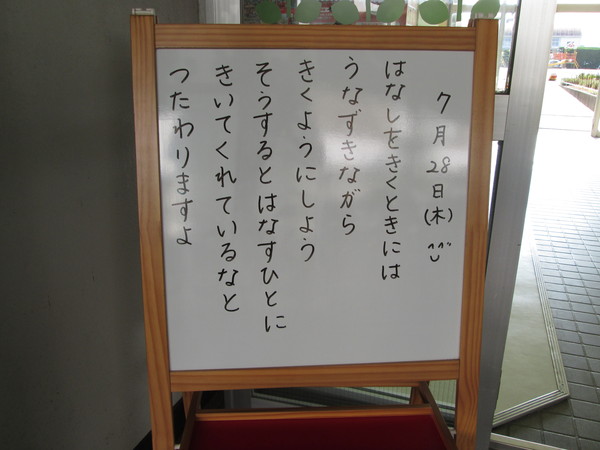 7月28日(木)
はなしをきくときには
うなずきながら
きくようにしよう
そうするとはなすひとに
きいてくれているなと
つたわりますよ